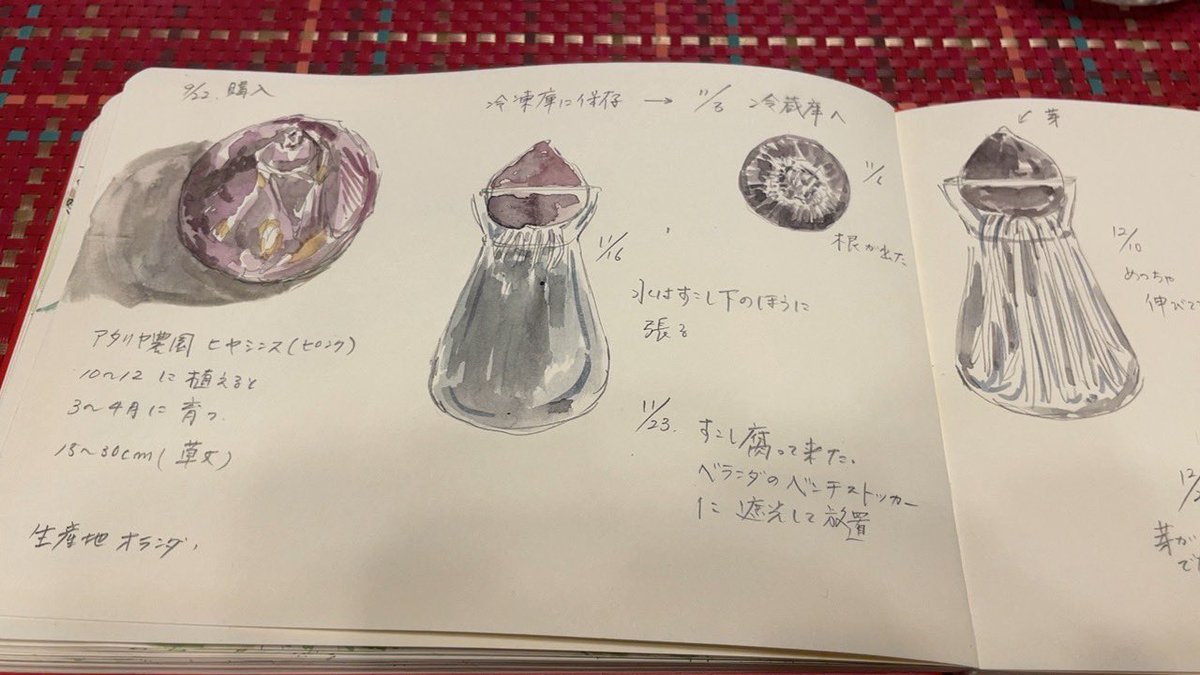 9/22 購入
アタリヤ農園 ヒヤシンス(ピンク)
10~12に植えると
3~4月に育つ
15~30cm(草丈)
生産地 オランダ.
冷凍庫に保存 → 11/3 冷蔵庫へ
11/6
根が出た
11/16
水はすこし下のほうに
張る
11/23.
すこし腐って来た、
ベランダのベンチストッカー
に遮光して放置
↙芽
12/10
めっちゃ
伸びて
芽が